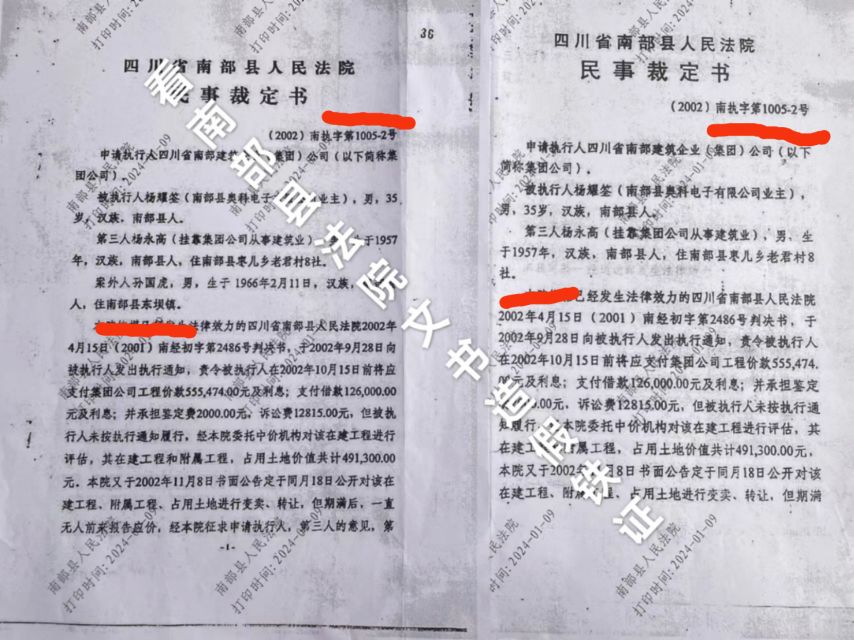 36
四川省南部县人民法院
民事裁定书
(2002)南执字第1005-2号
申请执行人四川省南部建筑企业(集团)公司(以下简称集
团公司)。
被执行人杨耀签(南部县奥科电子有限公司业主),男,35
岁,汉族,南部县人。
第三人杨永高(挂靠集团公司从事建筑业),男,生于1957
年,汉族,南部县人,住南部县枣儿乡老君村8社。
案外人孙国虎,男,生于1966年2月11日,汉族,
人,住南部县东坝镇。
发生法律效力的四川省南部县人民法院2002年
4月15日(2001)南经初字第2486号判决书,于2002年9月28日向
被执行人发出执行通知,责令被执行人在2002年10月15日前将应
支付集团公司工程价款555,474.00元及利息;支付借款126,000.00
元及利息;并承担鉴定费2000.00元,诉讼费12815.00元,但被执
行人未按执行通知履行,经本院委托中价机构对该在建工程进行
评估,其在建工程和附属工程,占用土地价值共计491,300.00
元。本院又于2002年11月8日书面公告定于同月18日公开对该
在建工程、附属工程、占用土地进行变卖、转让,但期满后,一直
无人前来报告应价,经本院征求申请执行人,第三人的意见,第
-1-
四川省南部县人民法院
民事裁定书
(2002)南执字第1005-2号
申请执行人四川省南部建筑企业(集团)公司(以下
简称集团公司)。
被执行人杨耀签(南部县奥科电子有限公司业主),
男,35岁,汉族,南部县人。
第三人杨永高(挂靠集团公司从事建筑业),男、生
于1957年,汉族,南部县人,住南部县枣儿乡老君村8
社。
已经发生法律效力的四川省南部县人民法院
2002年4月15日(2001)南经初字第2486号判决书,于
2002年9月28日向被执行人发出执行通知,责令被执行人
在2002年10月15日前将应支付集团公司工程价款555,474.
00元及利息;支付借款126,000.00元及利息;并承担鉴定
.00元,诉讼费12815.00元,但被执行人未按执行通
知履行,经本院委托中价机构对该在建工程进行评估,其
在建工程和附属工程,占用土地价值共计491,300.00元,
本院又于2002年 月8日书面公告定于同月18日公开对该
在建工程、附属工程、占用土地进行变卖、转让,但期满
看南部县法院文书造假铁证
南部县人民法院
打印时间:2024-01-09